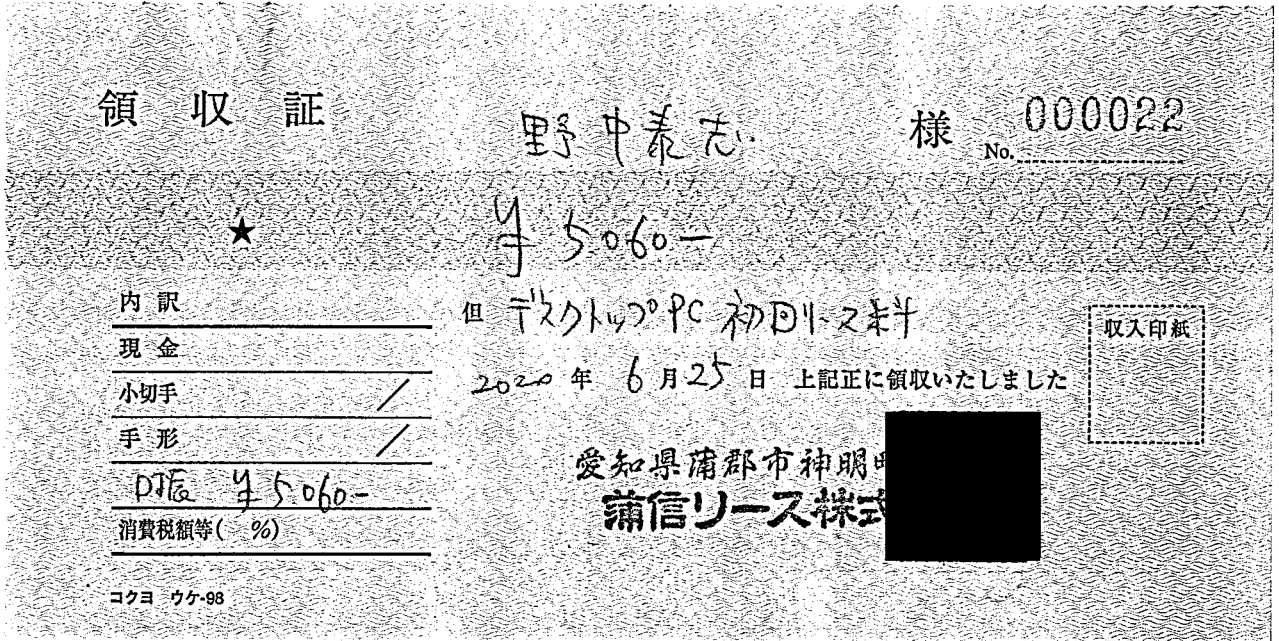 領収証
野中泰志 様
No. 000022
★
¥5,060-
但 デスクトップPC 初回リース料
2020年6月25日 上記正に領収いたしました
収入印紙
内訳
現金
小切手 /
手形 /
口振 ¥5,060-
消費税額等( %)
愛知県蒲郡市神明
蒲信リース株式
コクヨ ウケ-98